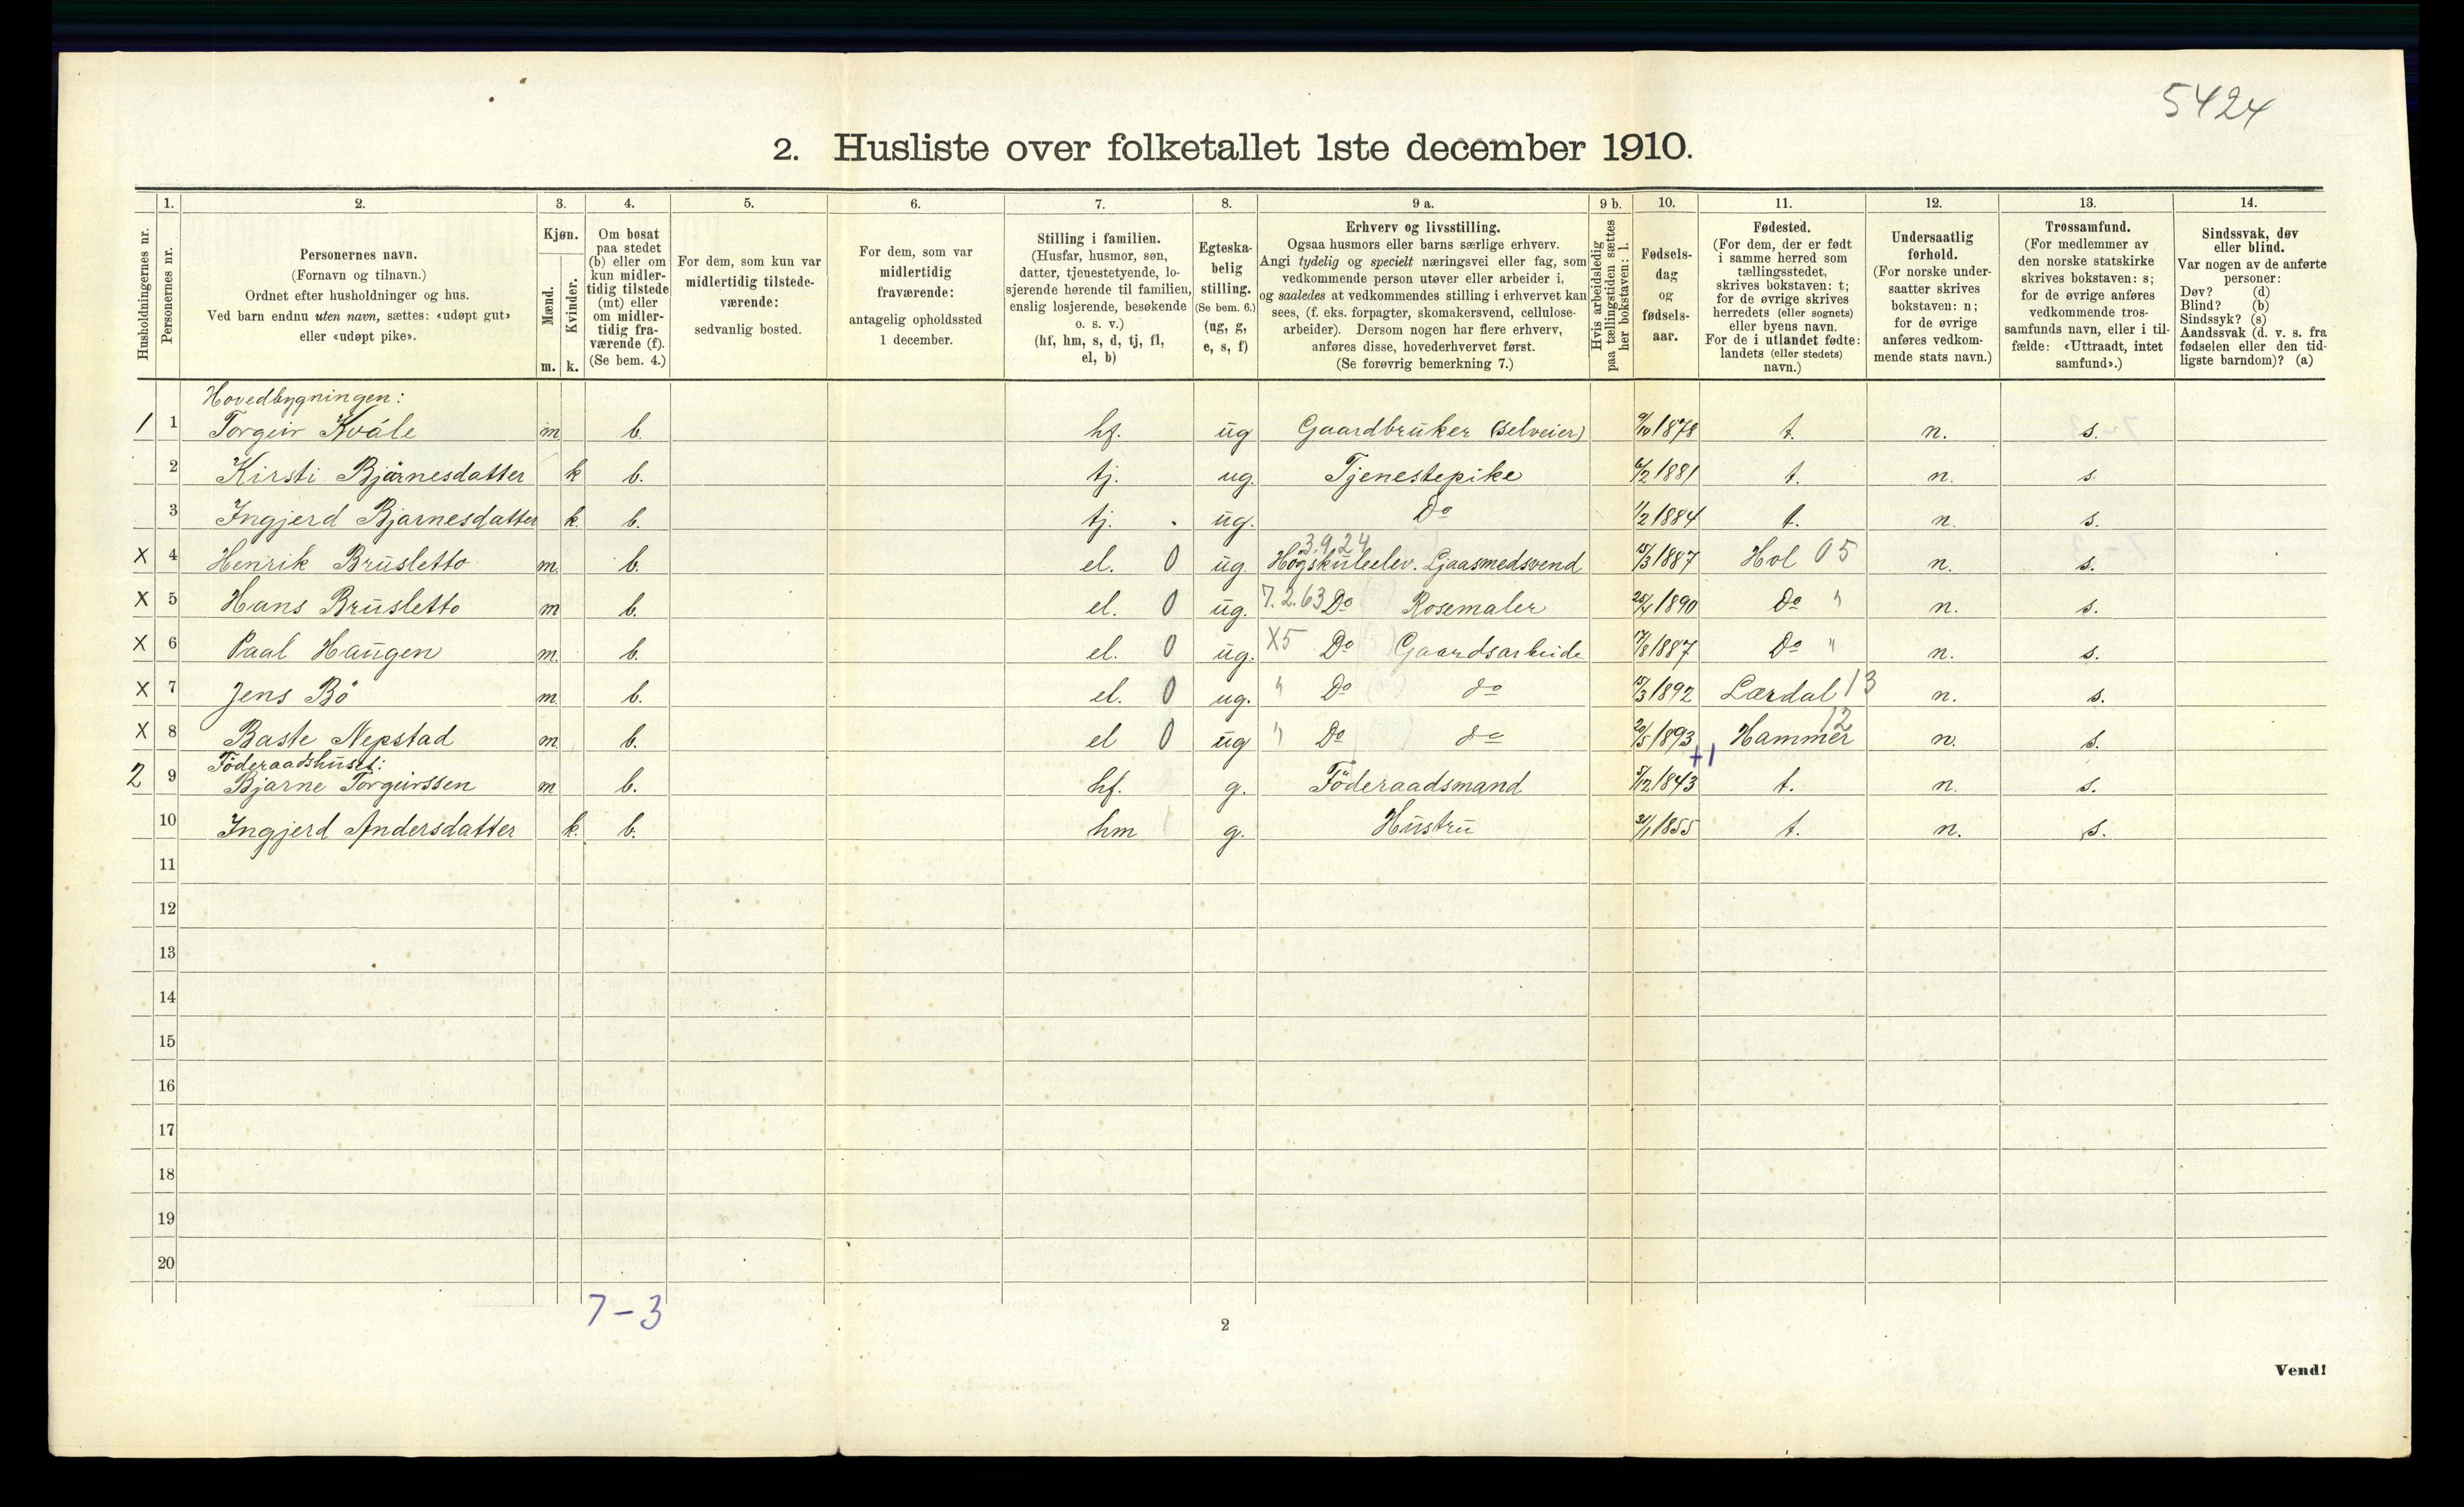 5424
2. Husliste over folketallet 1ste december 1910.
1. 2. 3. 4. 5. 6. 7. 8. 9 a. 9 b. 10. 11. 12. 13. 14.
Husholdningernes nr.
Personernes nr.
Personernes navn.
(Fornavn og tilnavn.)
Ordnet efter husholdninger og hus.
Ved barn endnu uten navn, sættes: «udøpt gut»
eller «udøpt pike».
Kjøn.
Mænd.
Kvinder.
m. k.
Om bosat
paa stedet
(b) eller om
kun midler-
tidig tilstede
(mt) eller
om midler-
tidig fra-
værende (f).
(Se bem. 4.)
For dem, som kun var
midlertidig tilstede-
værende:
sedvanlig bosted.
For dem, som var
midlertidig
fraværende:
antagelig opholdssted
1 december.
Stilling i familien.
(Husfar, husmor, søn,
datter, tjenestetyende, lo-
sjerende hørende til familien,
enslig losjerende, besøkende
o. s. v.)
(hf, hm, s, d, tj, fl,
el, b)
Egteska-
belig
stilling.
(Se bem. 6.)
(ug, g,
e, s, f)
Erhverv og livsstilling.
Ogsaa husmors eller barns særlige erhverv.
Angi tydelig og specielt næringsvei eller fag, som
vedkommende person utøver eller arbeider i,
og saaledes at vedkommendes stilling i erhvervet kan
sees, (f. eks. forpagter, skomakersvend, cellulose-
arbeider). Dersom nogen har flere erhverv,
anføres disse, hovederhvervet først.
(Se forøvrig bemerkning 7.)
Hvis arbeidsledig
paa tællingstiden sættes
her bokstaven: l.
Fødsels-
dag
og
fødsels-
aar.
Fødested.
(For dem, der er født
i samme herred som
tællingsstedet,
skrives bokstaven: t;
for de øvrige skrives
herredets (eller sognets)
eller byens navn.
For de i utlandet fødte:
landets (eller stedets)
navn.)
Undersaatlig
forhold.
(For norske under-
saatter skrives
bokstaven: n;
for de øvrige
anføres vedkom-
mende stats navn.)
Trossamfund.
(For medlemmer av
den norske statskirke
skrives bokstaven: s;
for de øvrige anføres
vedkommende tros-
samfunds navn, eller i til-
fælde: «Uttraadt, intet
samfund».)
Sindssvak, døv
eller blind.
Var nogen av de anførte
personer:
Døv? (d)
Blind? (b)
Sindssyk? (s)
Aandssvak (d. v. s. fra
fødselen eller den tid-
ligste barndom)? (a)
Hovedbygningen:
1 1 Torgeir Kvåle m b. hf. ug Gaardbruker (selveier) 1878 t. n. s.
2 Kirsti Bjårnesdatter k b. tj. ug. Tjenestepike 6/2 1881 t. n. s.
3 Ingjerd Bjarnesdatter k. b. tj. ug. Do 1/2 1884 t. n. s.
3.9.24
X 4 Henrik Brusletto m. b. el. 0 ug. Högskuleelev. Ljaasmedsvend 15/3 1887 Hol 05 n. s.
X 5 Hans Brusletto m b. el. 0 ug. 7.2.63 Do Rosemaler 25/4 1890 Do " n. s.
X 6 Paal Haugen m. b. el. 0 ug. X5 Do Gaardsarbeide 17/8 1887 Do " n. s.
X 7 Jens Bö m. b. el. 0 ug. " Do do 15/3 1892 Lærdal 13 n. s.
X 8 Baste Nepstad m. b. el 0 ug " Do do 20/5 1893 Hammer 12 n. s.
+1
Föderaadshuset:
2 9 Bjarne Torgeirssen m b. hf. g. Föderaadsmand 5/12 1843 t. n. s.
10 Ingjerd Andersdatter k. b. hm g. Hustru 31/1 1855 t. n. s.
11
12
13
14
15
16
17
18
19
20
7-3
2
Vend!